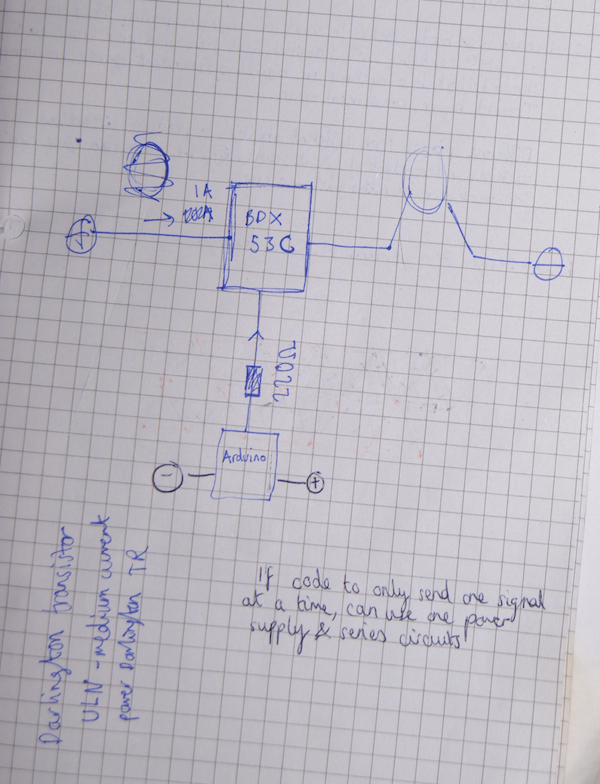 1A
BDX
53C
220Ω
Arduino
If code to only send one signal
at a time, can use one power
supply & series circuits
Darlington transistor
ULN - medium current
power Darlington TR